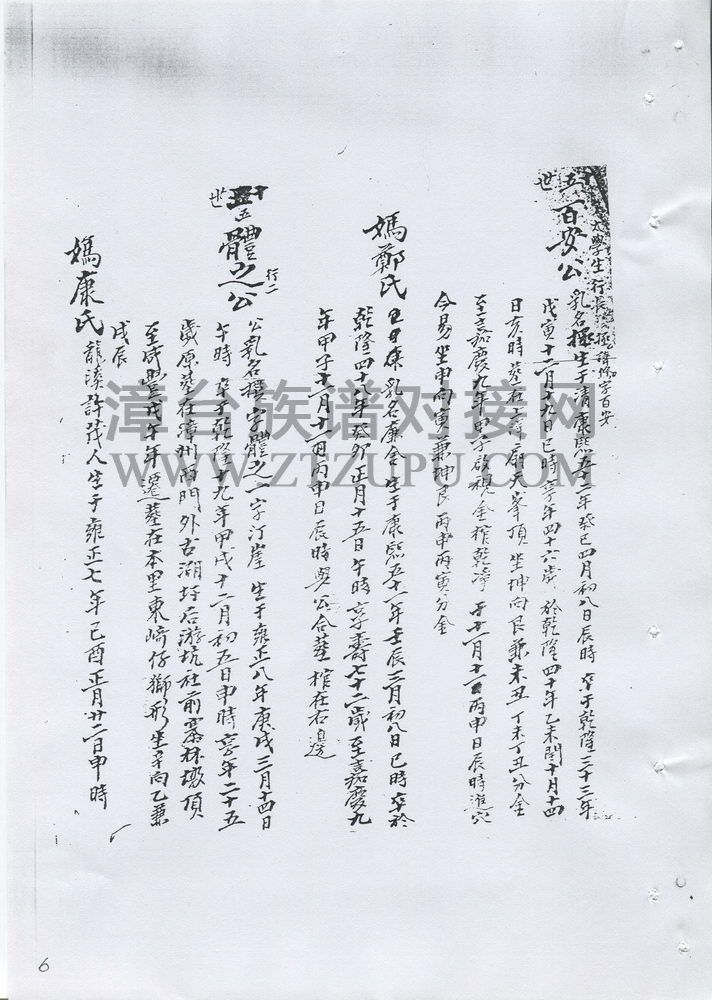 世 百安公
太學生 行長 字百安
乳名極生于清康熙五十二年癸巳四月初八日辰時 卒于乾隆二十三年
戊寅十二月十九日巳時享年四十六歲 於乾隆四十年乙未閏十月十四
日亥時葬在 天峯頂坐坤向艮兼未丑丁未丁丑分金
至嘉慶九年甲子啟視金棺乾淨于十一月十一日丙申日辰時進穴
今易坐申向寅兼坤艮丙申丙寅分金
媽鄭氏
乳名廉金生于康熙五十一年壬辰三月初八日巳時卒於
乾隆四十八年癸卯正月十五日午時享壽七十二歲至嘉慶九
年甲子十一月十一日丙申日辰時與公合葬棺在右邊
世 五 體之公 行二
公乳名 字體之一字汀崖 生于雍正八年庚戌三月十四日
午時 卒于乾隆十九年甲戌十二月初五日申時享年二十五
歲原葬在漳州西門外古湖 后游坑社前 林 頂
至咸豐戊午年遷葬在本里東崎仔獅形坐辛向乙兼
戌辰
媽康氏
龍溪許茂人生于雍正七年己酉正月廿二日申時
漳台族谱对接网
WWW.ZTZUPU.COM
6